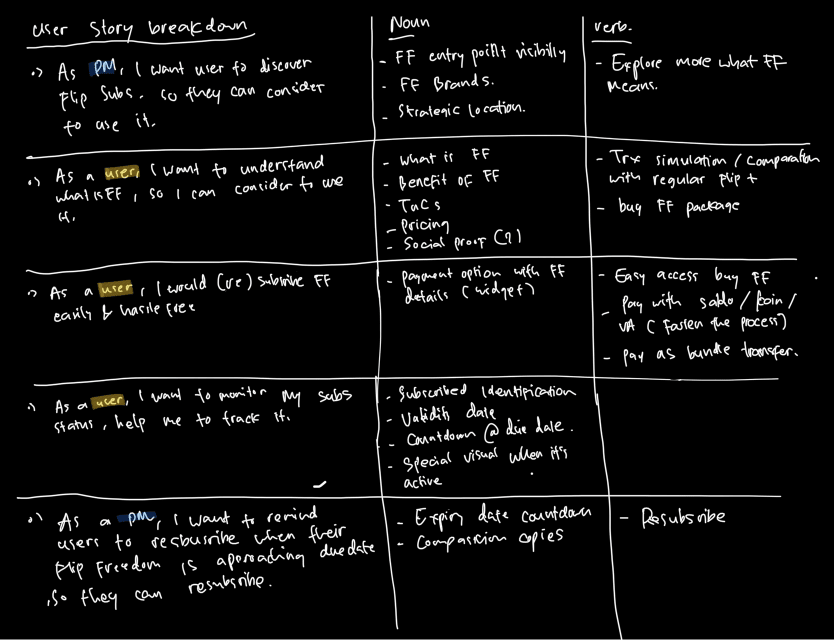 User Story breakdown
Noun
verb.
.) As PM, I want user to discover
Flip Subs. so they can consider
to use it.
- FF entry point visibility
- FF Brands.
- Strategic location.
- Explore more what FF
Means.
.) As a user, I want to understand
what is FF, so I can consider to use
it.
- what is FF
- Benefit of FF
- TnCs
- Pricing
- Social proof (?)
- Trx simulation / comparation
with regular flip +
- buy FF package
.) As a user, I would (re) subsribe FF
easily & hasle Free
- payment option with FF
details (widget)
- Easy access buy FF
- pay with saldo / koin /
VA ( Fasten the process)
- pay as bundle transfer.
.) As a user, I want to monitor my subs
status, help me to track it.
- Subscribed Identification
- Validity date
- Countdown @ due date.
- Special visual when it's
active
.) As a PM, I want to remind
users to resbusribe when their
Flip Freedom is aproading due date
, so they can resubsribe.
- Expiry date countdown
- Comparrion copies
- Resubsribe